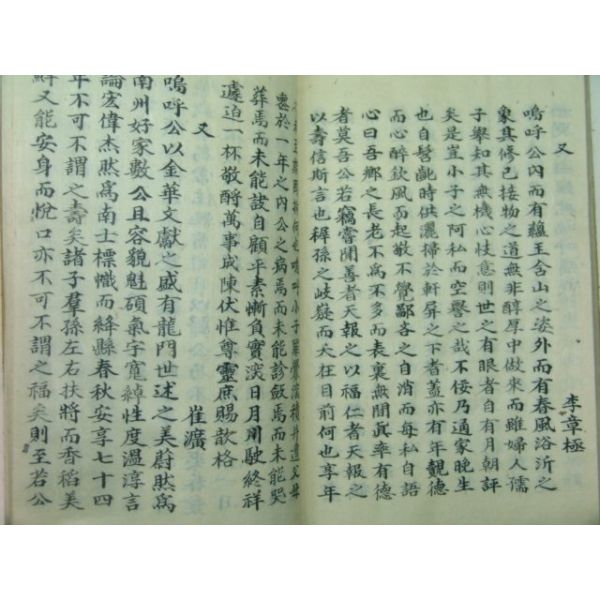 又
李章極
嗚呼公內而有蘊玉含山之姿外而有春風浴沂之
象其修己接物之道無非醇厚中做來而雖婦人孺
子擧知其無機心忮意則世之有眼者自有月朝評
矣是豈小子之阿私而空譽之哉不佞乃通家晩生
也自髫齔時供灑掃於軒屛之下者蓋亦有年觀德
而心醉欽風而起敬不覺鄙吝之自消而每私自語
心曰吾鄕之長老不爲不多而表裏無間眞率有德
者莫吾公若竊嘗聞善者天報之以福仁者天報之
以壽信斯言也稺孫之岐嶷而夭在目前何也享年
葬焉而未能誄自顧平素慚負實深日月用駛終祥
遽迫一杯敬酹萬事成陳伏惟尊靈庶賜歆格
又
崔濱
嗚呼公以金華文獻之盛有龍門世述之美蔚然爲
南州好家數公且容貌魁碩氣宇寬綽性度溫淳言
論宏偉杰然爲南士標幟而絳縣春秋安享七十四
年不可不謂之壽矣諸子羣孫左右扶將而香稻美
鮮又能安身而悅口亦不可不謂之福矣則至若公